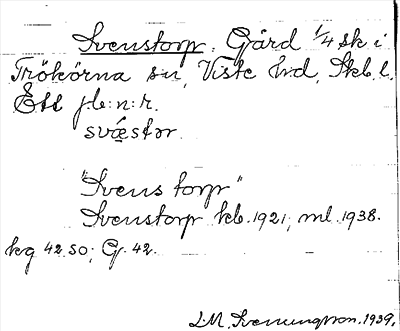 Svenstorp. Gård 1/4 sk i
Trökörna sn, Viste hd, Skb. l.
Ett jb: n: r.
svæstor
"Svens torp"
Svenstorp kb. 1921; ml. 1938.
kg 42 SO; G. 42.
1939.